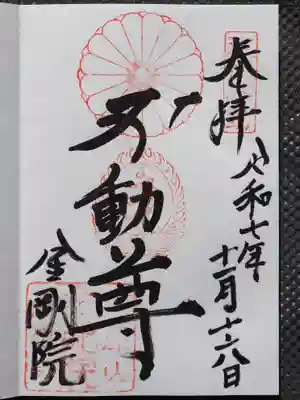 奉拝
令和七年
十一月十六日
不動尊
金剛院